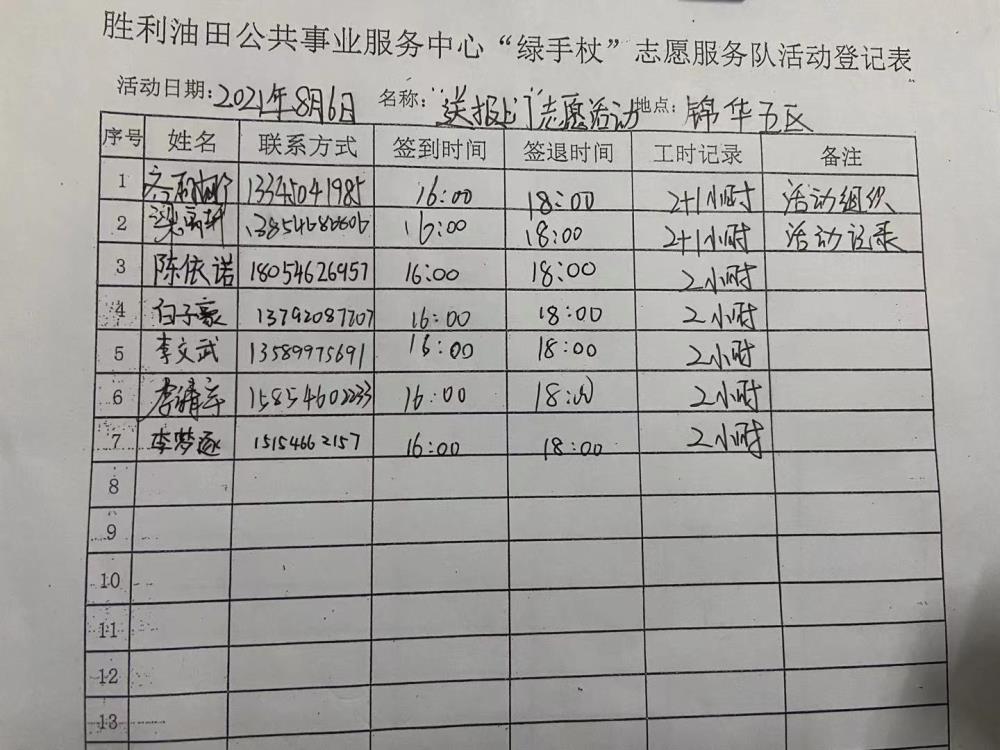 胜利油田公共事业服务中心“绿手杖”志愿服务队活动登记表
活动日期:2021年8月6日 名称:“送报上门”志愿活动 地点:锦华五区
序号 姓名 联系方式 签到时间 签退时间 工时记录 备注
1 13345041985 16:00 18:00 2+1小时 活动组织
2 16:00 18:00 2+1小时 活动记录
3 陈依诺 18054626957 16:00 18:00 2小时
4 白子豪 13792087707 16:00 18:00 2小时
5 李文武 13589975691 16:00 18:00 2小时
6 15854602233 16:00 18:00 2小时
7 李梦逐 15154662157 16:00 18:00 2小时
8
9
10
11
12
13